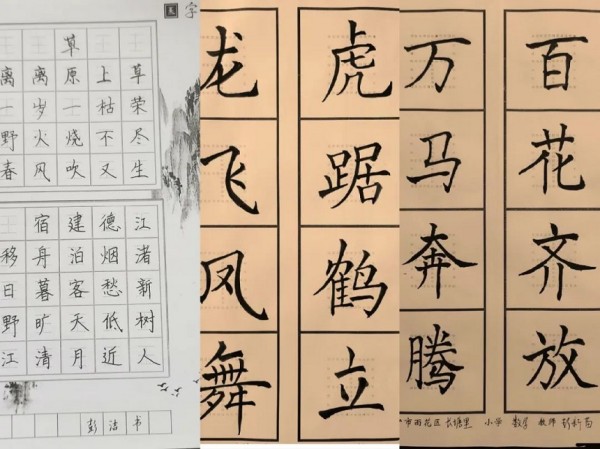 字
草
离离原上草
一岁一枯荣
野火烧不尽
春风吹又生
宿建德江
移舟泊烟渚
日暮客愁新
野旷天低树
江清月近人
彭洁书
虎踞鹤立
龙飞凤舞
百花齐放
万马奔腾
市雨花区 长塘里 小学 数学 教师 彭